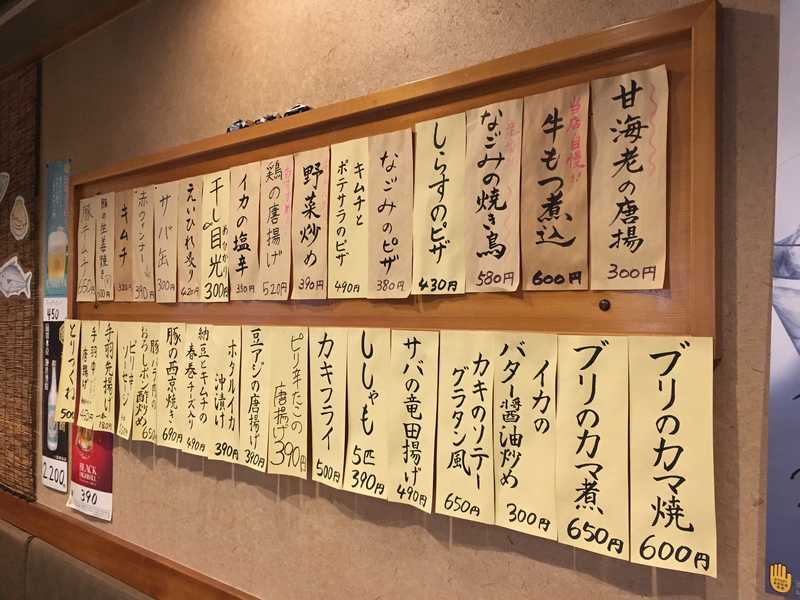 甘海老の唐揚
300円
当店自慢!!
牛もつ煮込
600円
なごみの焼き鳥
580円
しらすのピザ
430円
なごみのピザ
380円
キムチと
ポテサラのピザ
490円
野菜炒め
390円
鶏の唐揚げ
520円
イカの塩辛
350円
干し目光
めひかり
300円
えいひれ炙り
420円
サバ缶
300円
赤ウィンナー
390
キムチ
320円
豚の生姜焼き
豚キムチ
650円
ブリのカマ焼
600円
ブリのカマ煮
650円
イカの
バター醤油炒め
300円
カキのソテー
グラタン風
650円
サバの竜田揚げ
490円
ししゃも
5匹
390円
カキフライ
500円
ピリ辛たこの
唐揚げ
390円
豆アジの唐揚げ
390円
ホタルイカ
沖漬け
390円
納豆とキムチの
春巻チーズ入り
490円
豚の西京焼き
690円
おろしポン酢炒め
650円
ピリ辛
ソーセージ
手羽先揚げ
手羽中
唐揚げ
とりつくね
500
450
2,200
BLACK
HIGHBALL
390